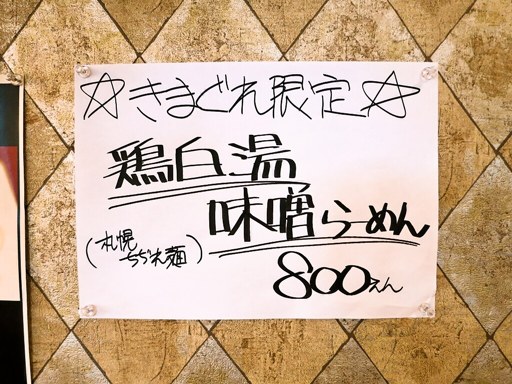 ☆きまぐれ限定☆
鶏白湯
味噌らーめん
(札幌
ちぢれ麺)
800えん